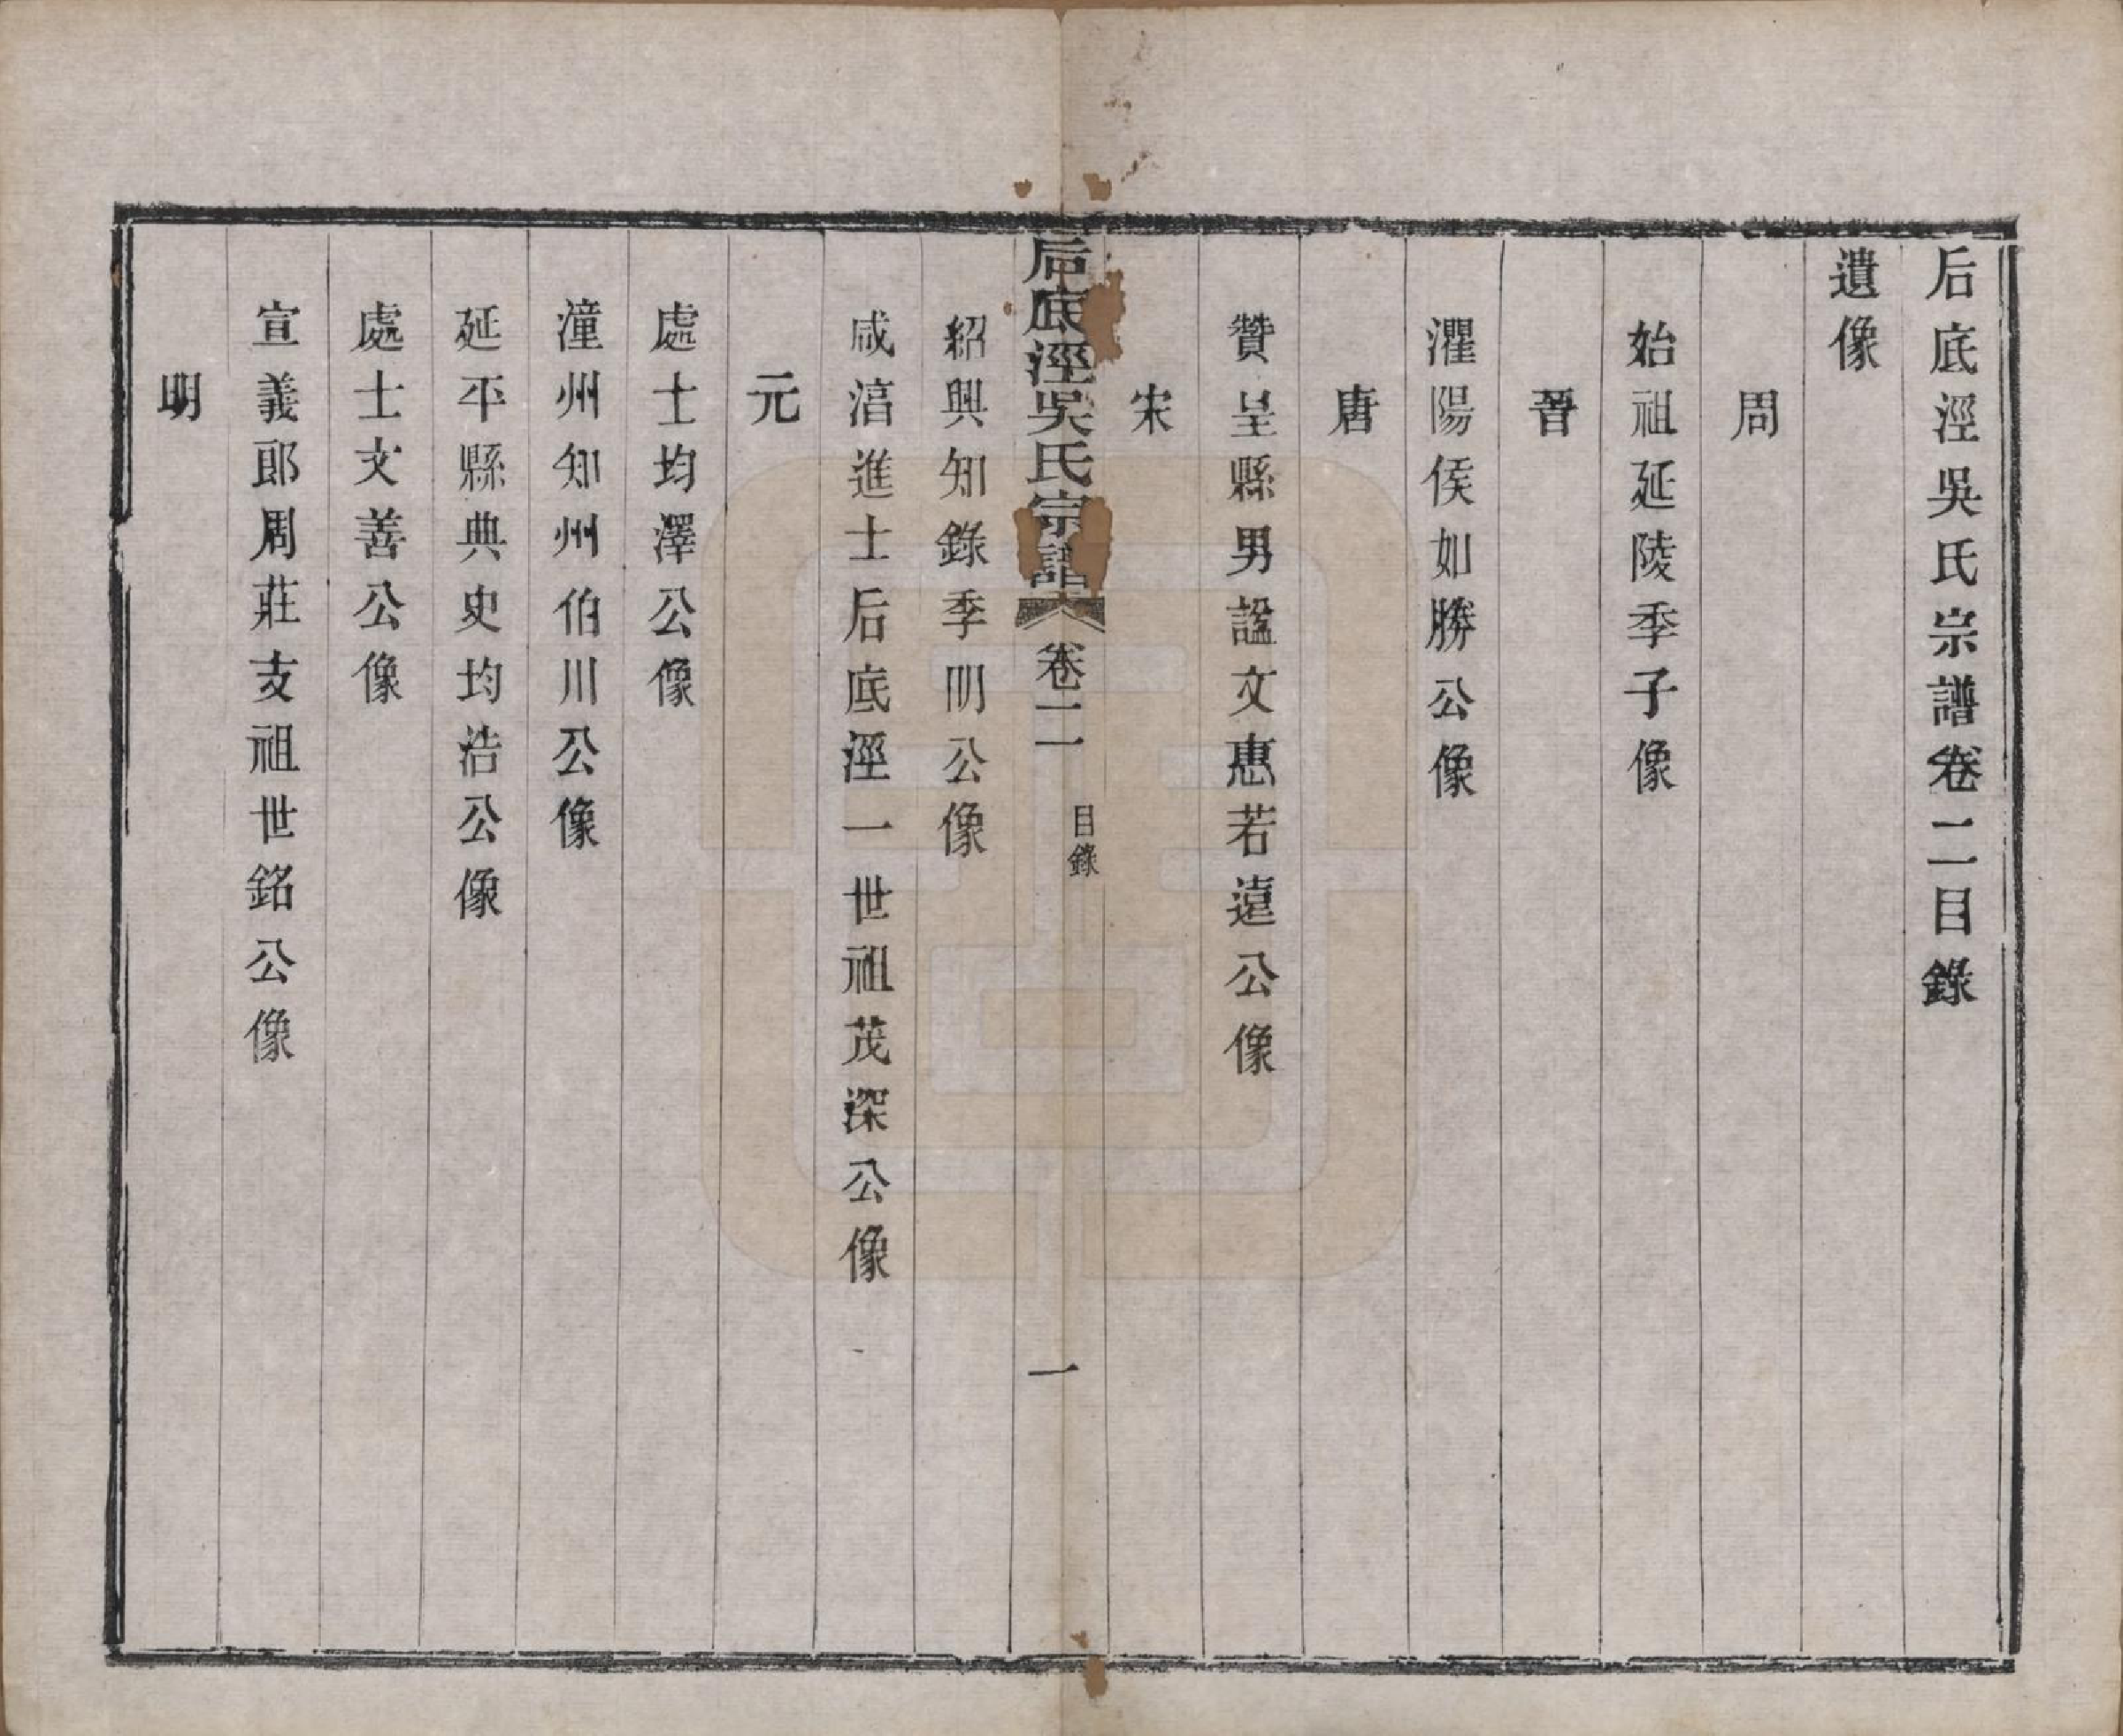 后底涇吳氏宗譜卷二目錄
遺像
周
始祖延陵季子像
晉
濯陽侯如勝公像
唐
贊皇縣男諡文惠若遠公像
宋
后底涇吳氏宗譜
卷二
目錄
一
紹興知錄季明公像
咸淳進士后底涇一世祖茂深公像
元
處士均澤公像
潼州知州伯川公像
延平縣典史均浩公像
處士文善公像
宣義郎周莊支祖世銘公像
明